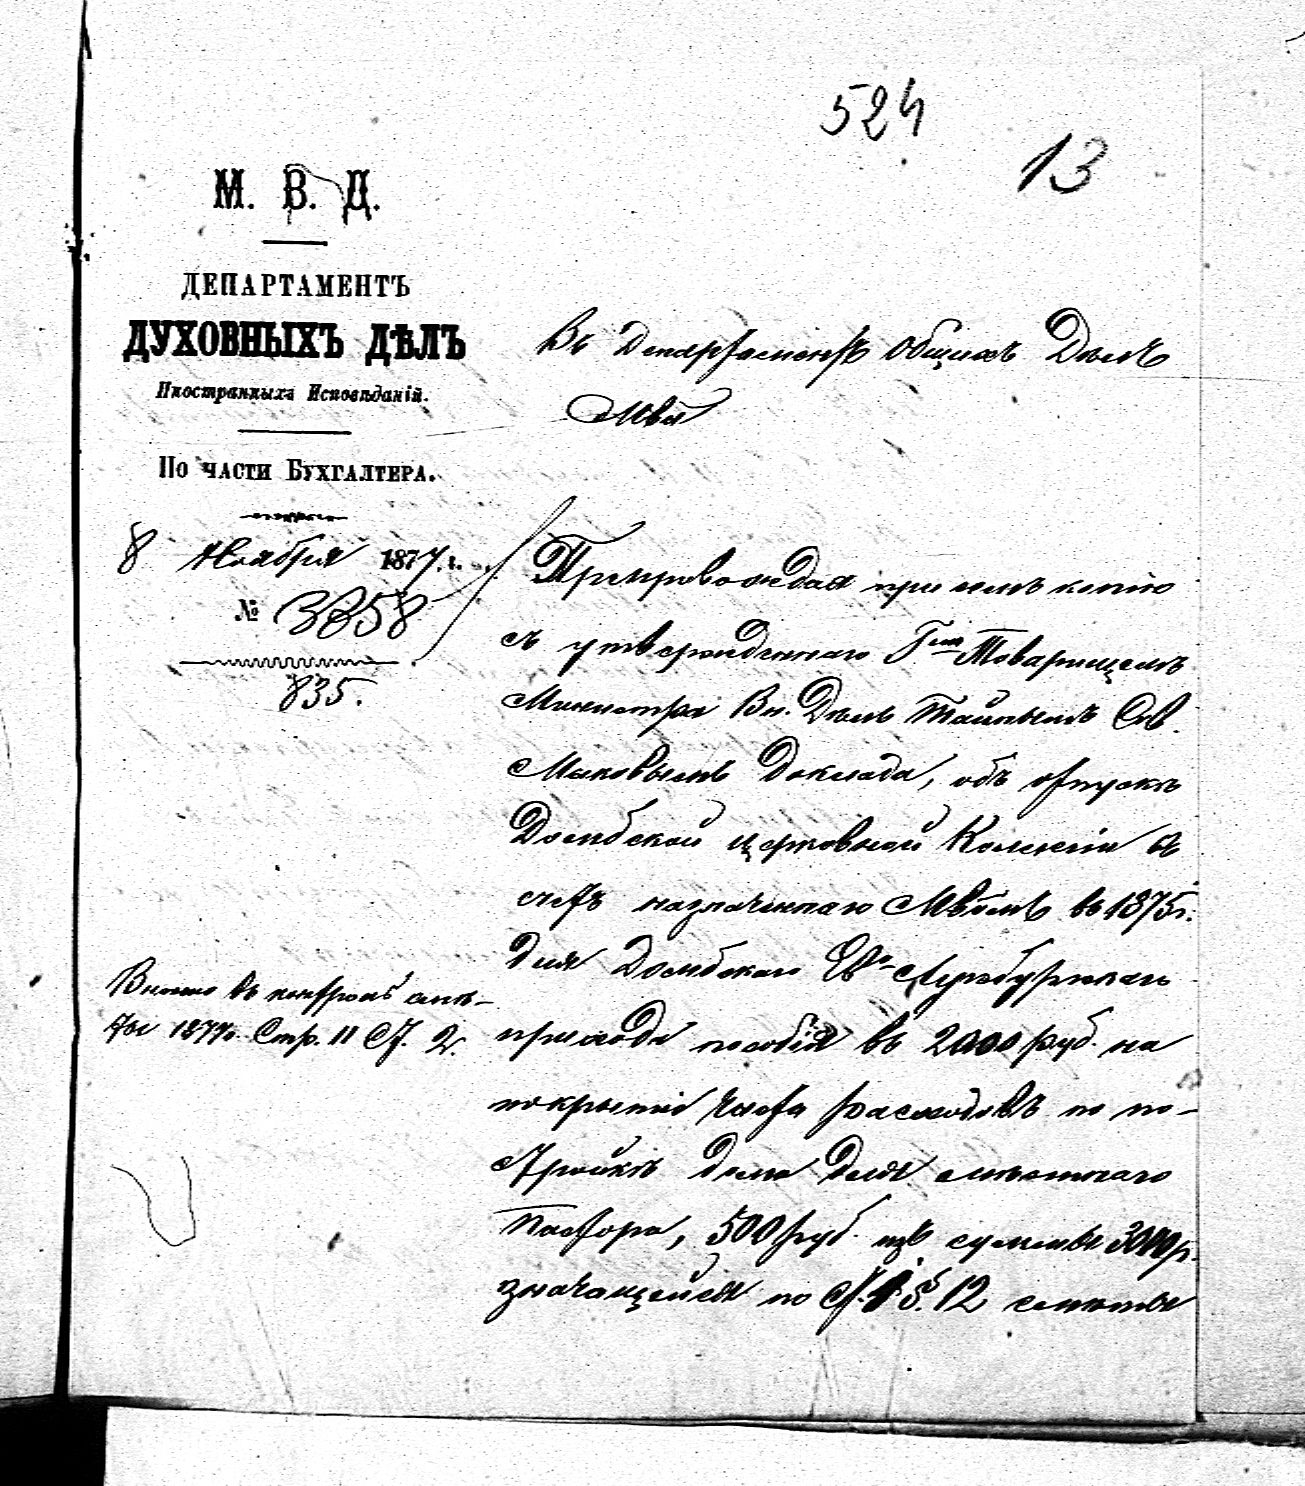 524
13
М. В. Д.
ДЕПАРТАМЕНТЪ
ДУХОВНЫХЪ ДѢЛЪ
Иностранныхъ Исповѣданій.
По части Бухгалтера.
8 Ноября 1877 г.
№ 3358
835.
Въ Департаментъ Общихъ Дѣлъ
Мвд
Препровождая при семъ копію
съ утвержденнаго Гмъ Товарищемъ
Министра Вн. Дѣлъ Тайнымъ Сов.
Маковымъ доклада, объ отпускѣ
Домбской церковной Коллегіи въ
счетъ назначеннаго Мвдмъ въ 1875 г.
для Домбскаго Ев.-Аугсбургскаго
прихода пособія въ 2000 руб. на
покрытіе части расходовъ по по-
стройкѣ дома для мѣстнаго
Пастора, 500 руб. изъ суммы 3000 р.
значащейся по ст. 1 § 12 смѣты
въ контроль смѣ-
ты 1877 г. Стр. 11 Ст. 2.